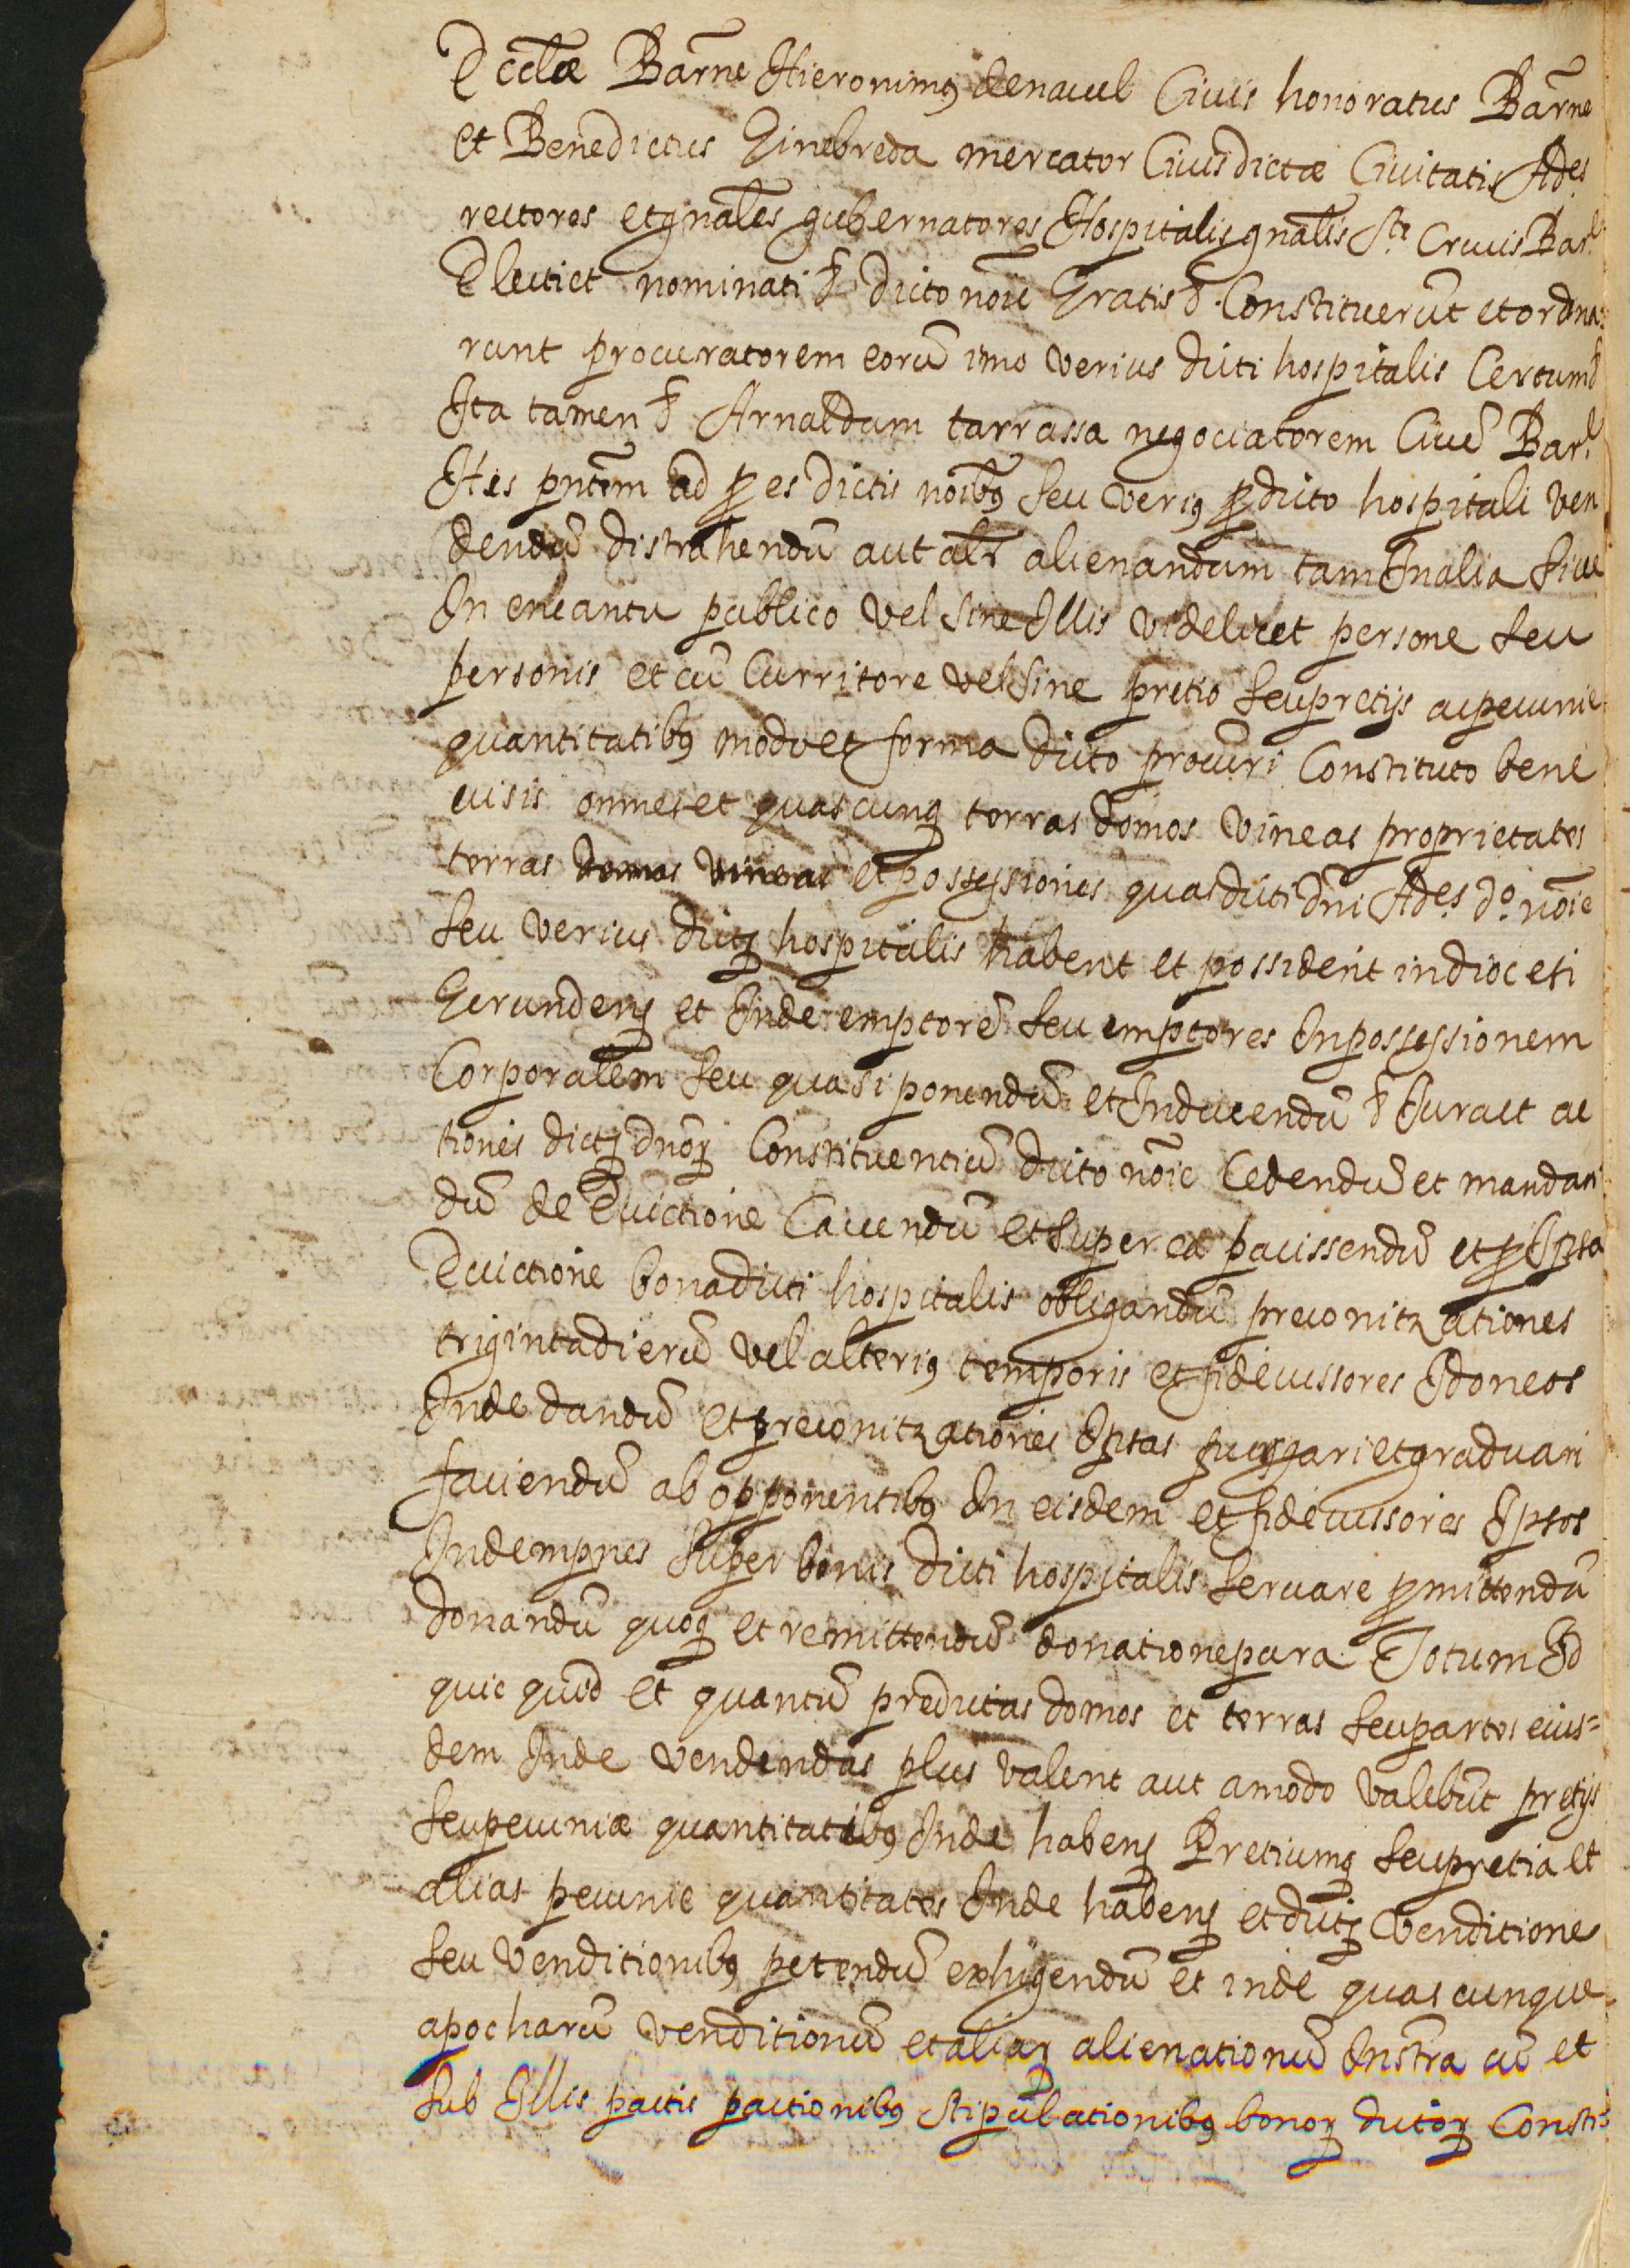 Ecclae Barne Hieronimus denauel Ciuis honoratus Barne
et Benedictus Ginebreda mercator Ciuis dictae Ciuitatis Ades
rectores et gnales gubernatores Hospitalis gnalis Ste Crucis Bar
Electi et nominati & dicto noie Gratis & Constituerut et ordna:
runt procuratorem eoru imo verius dicti hospitalis Certum &
Ita tamen & Arnaldum tarrassa negociatorem Ciue Bar
His pntem ad p es dictis noibus seu verius p dicto hospitali ven
dendu distrahendu aut alr alienandum tam In alia sive
In encantu publico vel sine Illis videlicet persone seu
personis et cu Curritore vel sine pretio seu pretijs ac pecunie
quantitatibus modo et forma dicto procuri Constituto bene
visis omnes et quascunq terras domos vineas proprietates
terras domos vineas et possessiones quas dicti dni Ades do noie
seu verius dictq hospitalis habent et possident in dioc esi
Gerundens et Inde emptore seu emptores In possessionem
Corporalem seu quasi ponendu et Inducendu & Jura et ac
tiones dictq dnoq Constituentiu dicto noie Cedendu et mandan
du de Euictione Cavendu et super ea paciscendu et p Ipsa
Euictione bona dicti hospitalis obligandu preconitzationes
triginta dieru vel alterius temporis et fideiussores Idoneos
Inde dandu et preconitzationes Ipsas purgari et graduari
faciendu ab opponentibus In eisdem et fideiussores Ipsos
Indempnes super bonis dicti hospitalis servare pmittendu
donandu quoq et remittendu donatione pura Totum Id
quic quid et quantu predictas domos et terras seu partes eius=
dem Inde vendendas plus valent aut amodo valebut pretijs
seu pecuniae quantitatibus Inde habens Pretiumq seu pretia et
alias pecunie quantitates Inde habens et dictq venditione
seu venditionibus petendu exhigendu et inde quascunque
apocharu venditionu et aliaq alienationu Instra cu et
sub Illis pactis pactionibus stipulationibus bonoq dictoq Consti=